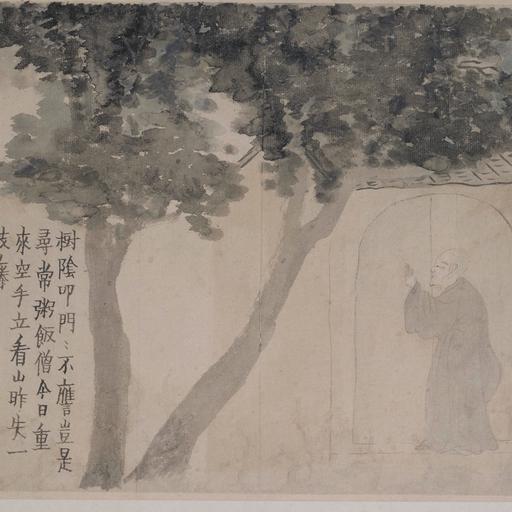 樹陰叩門〻不譍豈是
尋常粥飯僧今日重
來空手立看山昨失一
枝藤